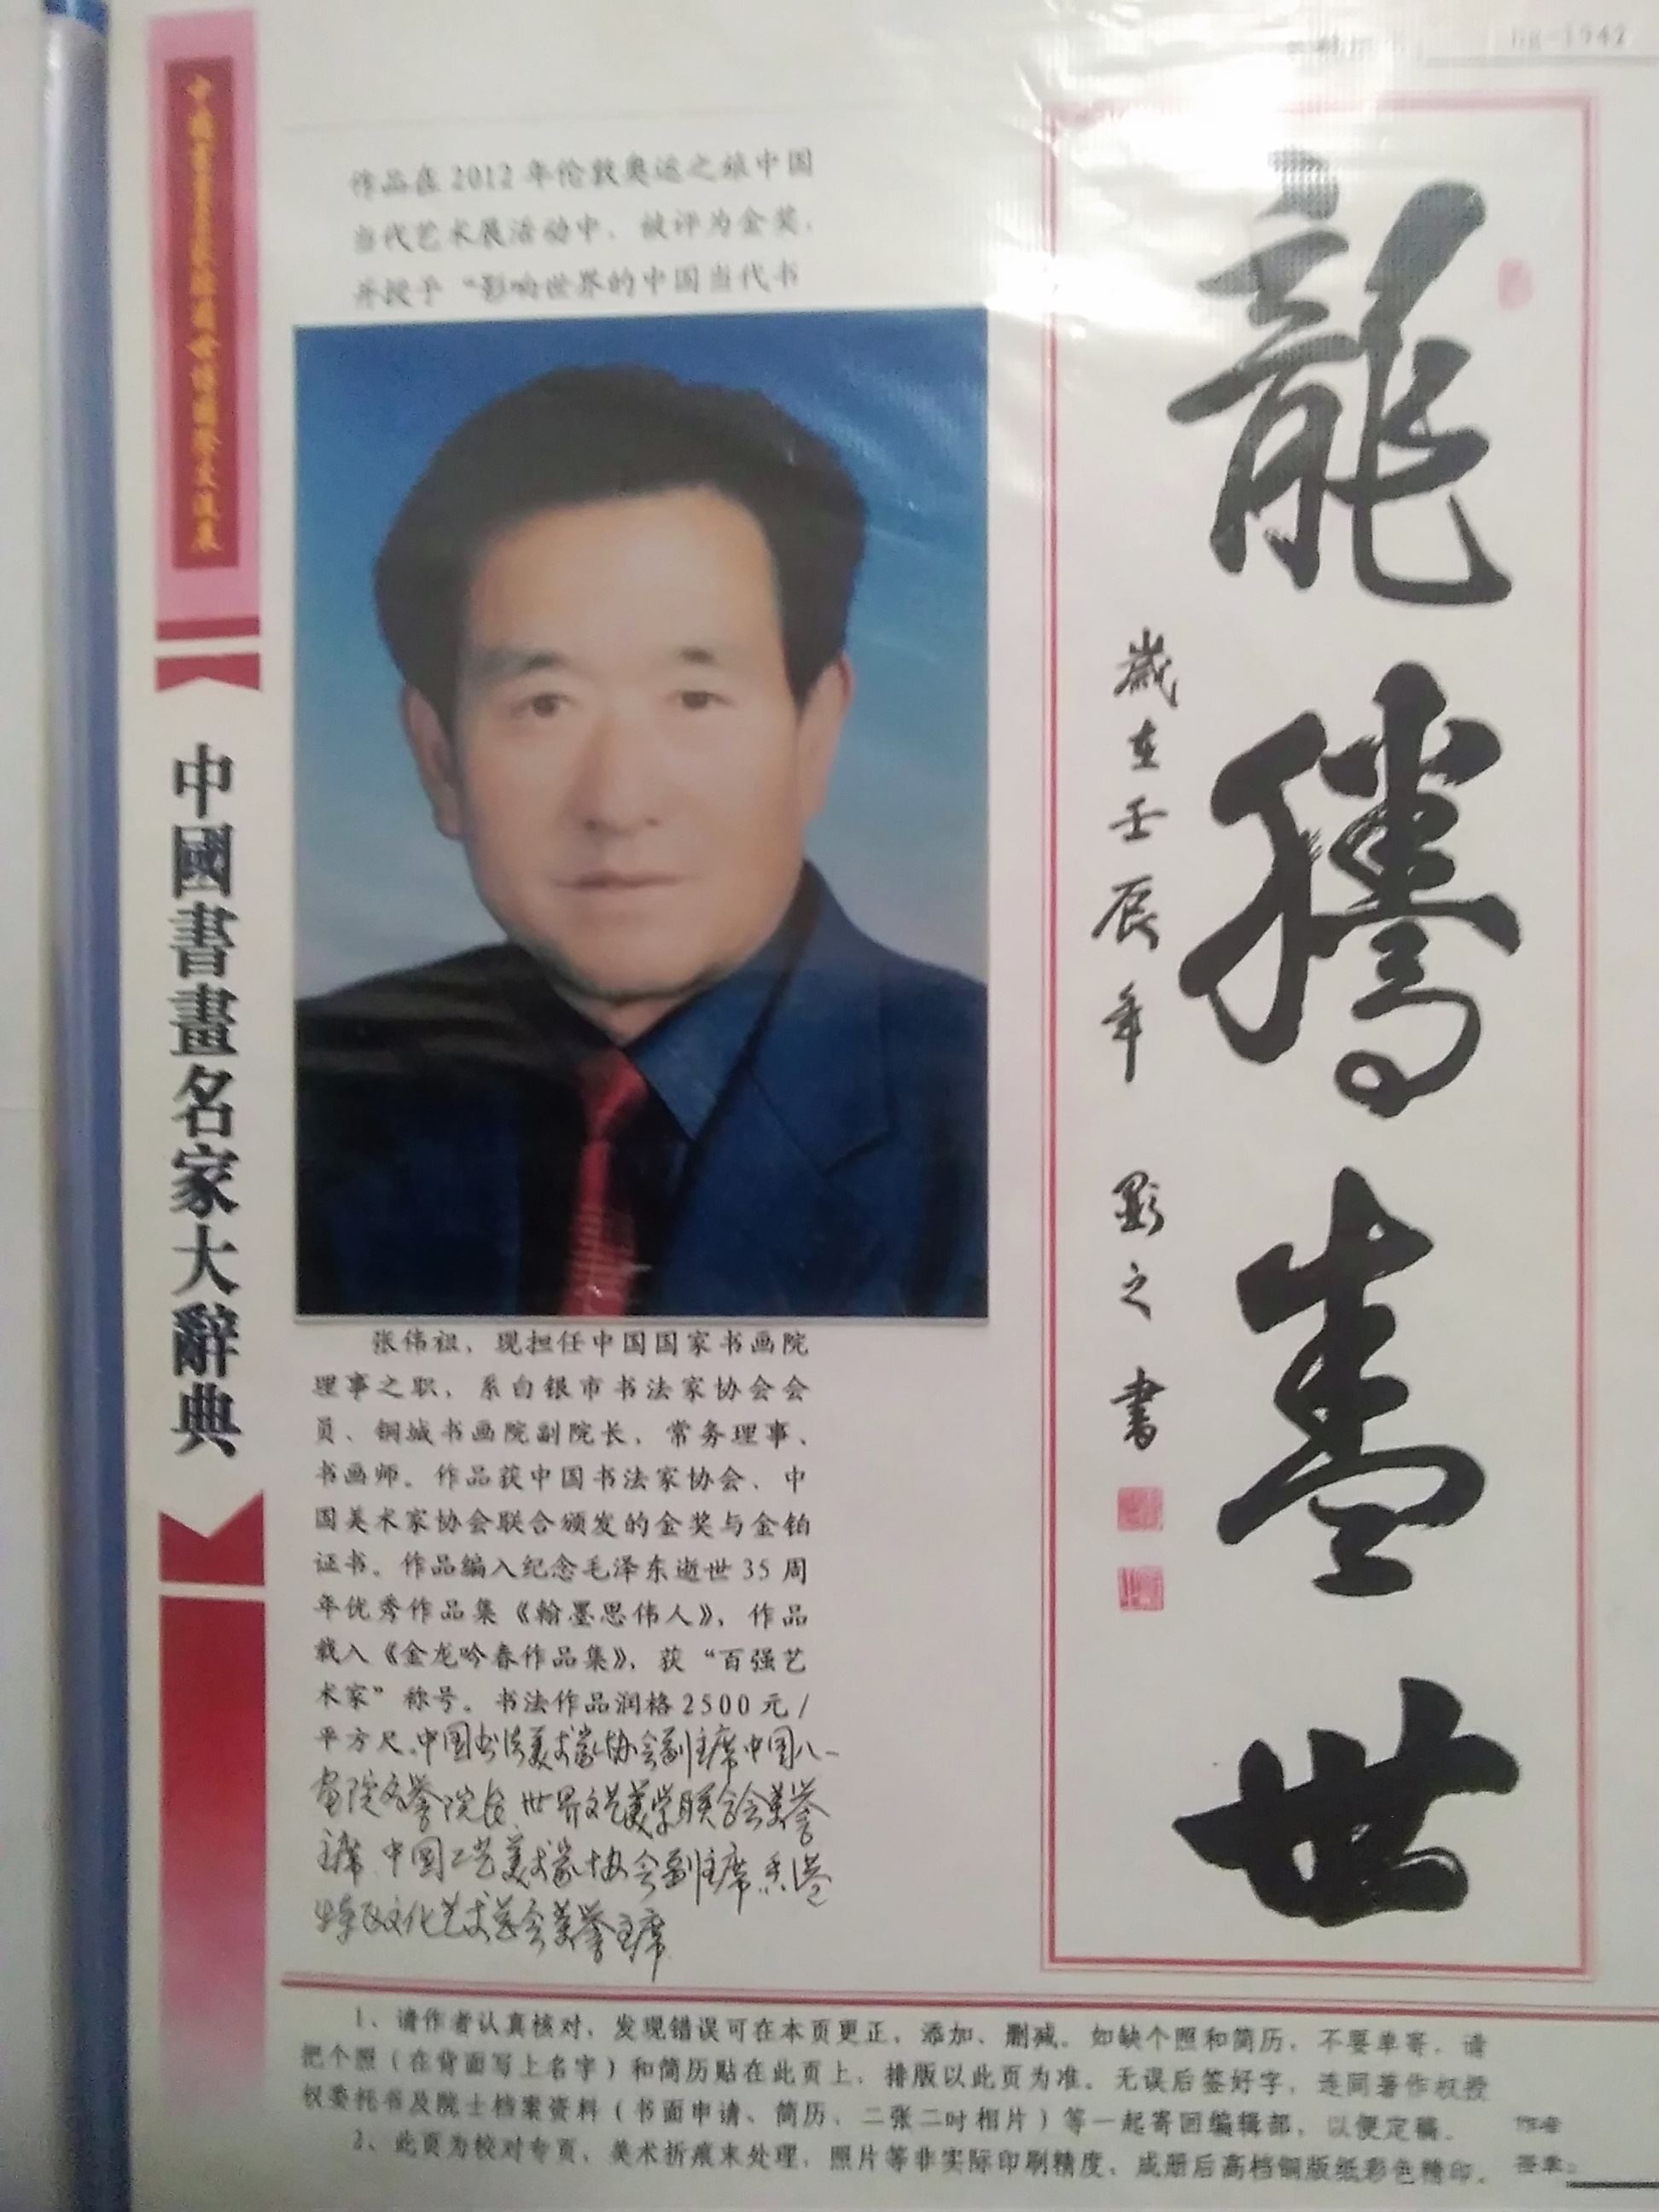 中國書畫名家大辭典
作品在2012年伦敦奥运之旅中国
当代艺术展活动中，被评为金奖，
并授予“影响世界的中国当代书
张伟祖，现担任中国国家书画院
理事之职，系白银市书法家协会会
员、铜城书画院副院长，常务理事、
书画师。作品获中国书法家协会、中
国美术家协会联合颁发的金奖与金铂
证书。作品编入纪念毛泽东逝世35周
年优秀作品集《翰墨思伟人》，作品
载入《金龙吟春作品集》，获“百强艺
术家”称号。书法作品润格2500元/
平方尺.中国书法美术家协会副主席中国八一
画院名誉院长.世界文艺美学联合会美誉
主席.中国工艺美术家协会副主席香港
文化艺术总会美誉主席
龍騰盛世
歲在壬辰年 影之書
1、请作者认真核对，发现错误可在本页更正，添加、删减。如缺个照和简历，不要单寄，请
把个照（在背面写上名字）和简历贴在此页上，排版以此页为准。无误后签好字，连同著作权授
权委托书及院士档案资料（书面申请、简历、二张二吋相片）等一起寄回编辑部，以便定稿。
2、此页为校对专页，美术折痕末处理，照片等非实际印刷精度，成册后高档铜版纸彩色精印。
作者
签章：